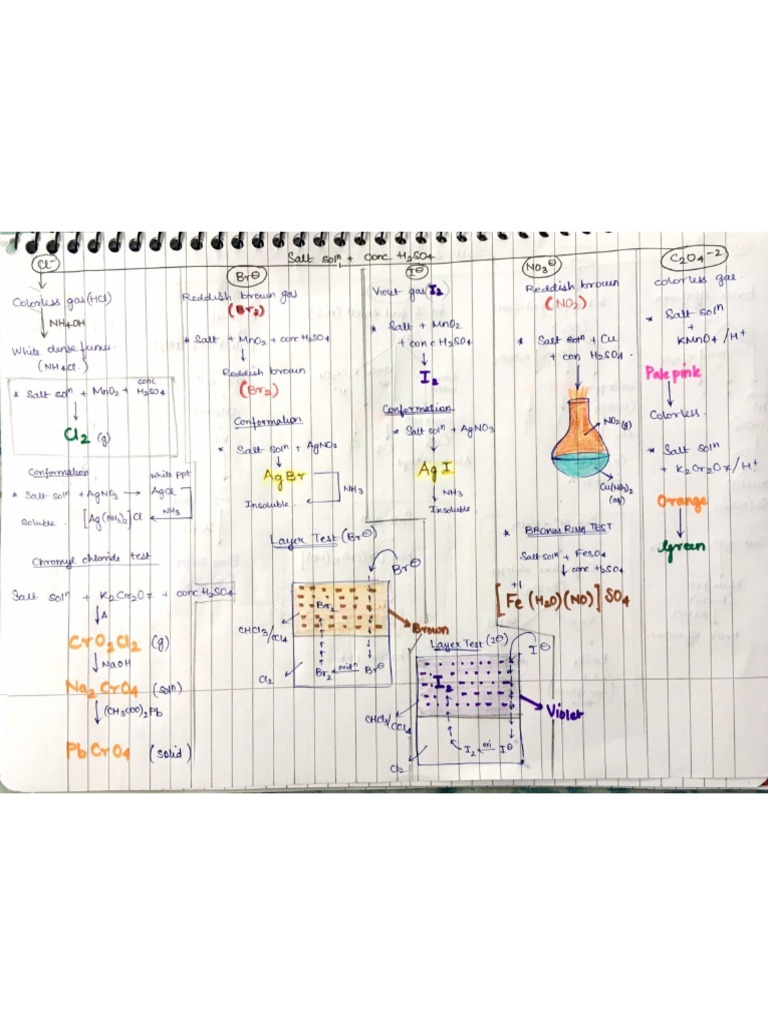 Salt solⁿ + conc H2SO4
Cl-
Colorless gas (HCl)
NH4OH
White dense fumes
(NH4Cl)
* Salt solⁿ + MnO2 + conc H2SO4
Cl2 (g)
Conformation
White ppt
* Salt solⁿ + AgNO3 → AgCl
NH3
Soluble [Ag(NH3)2]Cl
Chromyl chloride test
Salt solⁿ + K2Cr2O7 + conc H2SO4
Δ
CrO2Cl2 (g)
NaOH
Na2CrO4 (solⁿ)
(CH3COO)2Pb
PbCrO4 (solid)
Br⊖
Reddish brown gas
(Br2)
* Salt + MnO2 + conc H2SO4
Reddish brown
(Br2)
Conformation
* Salt solⁿ + AgNO3
AgBr
NH3
Insoluble
Layer Test (Br⊖)
Br⊖
Br2
Brown
CHCl3/CCl4
Cl2
Br2 ← oxidⁿ Br⊖
I⊖
Violet gas (I2)
* Salt + MnO2
+ conc H2SO4
I2
Conformation
* Salt solⁿ + AgNO3
AgI
NH3
Insoluble
Layer Test (I⊖)
I⊖
I2
Violet
CHCl3/CCl4
I2 ← I⊖
Cl2
NO3⊖
Reddish brown
(NO2)
* Salt solⁿ + Cu
+ con H2SO4
NO2(g)
Cu(NO3)2
(aq)
* BROWN RING TEST
Salt solⁿ + FeSO4
conc H2SO4
[Fe(H2O)(NO)]SO4
+1
C2O4-2
colorless gas
* Salt solⁿ
+
KMnO4/H+
Pale pink
Colorless
* Salt solⁿ
+ K2Cr2O7/H+
Orange
Green